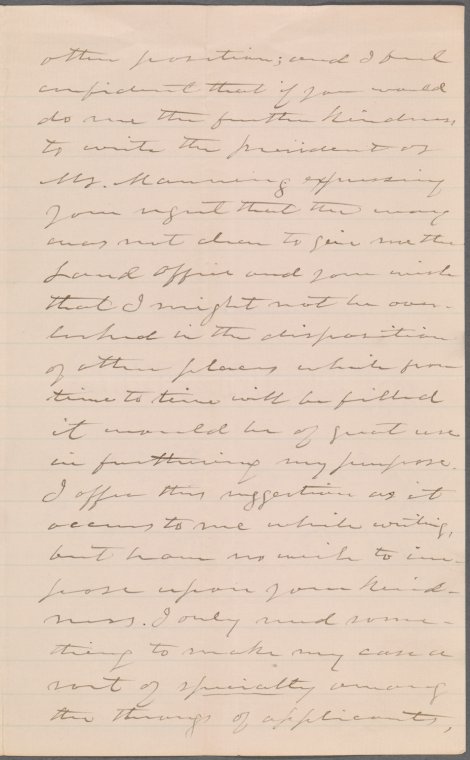 other position; and I feel
confident that if you would
do me the further kindness
to write the president or
Mr. Manning expressing
your regret that the way
was not clear to give me the
Land Office and your wish
that I might not be over-
looked in the disposition
of other places which from
time to time will be filled
it would be of great use
in furthering my purpose.
I offer this suggestion as it
occurs to me while writing,
but have no wish to im-
pose upon your kind-
ness. I only need some-
thing to make my case a
sort of specialty among
the throngs of applicants,